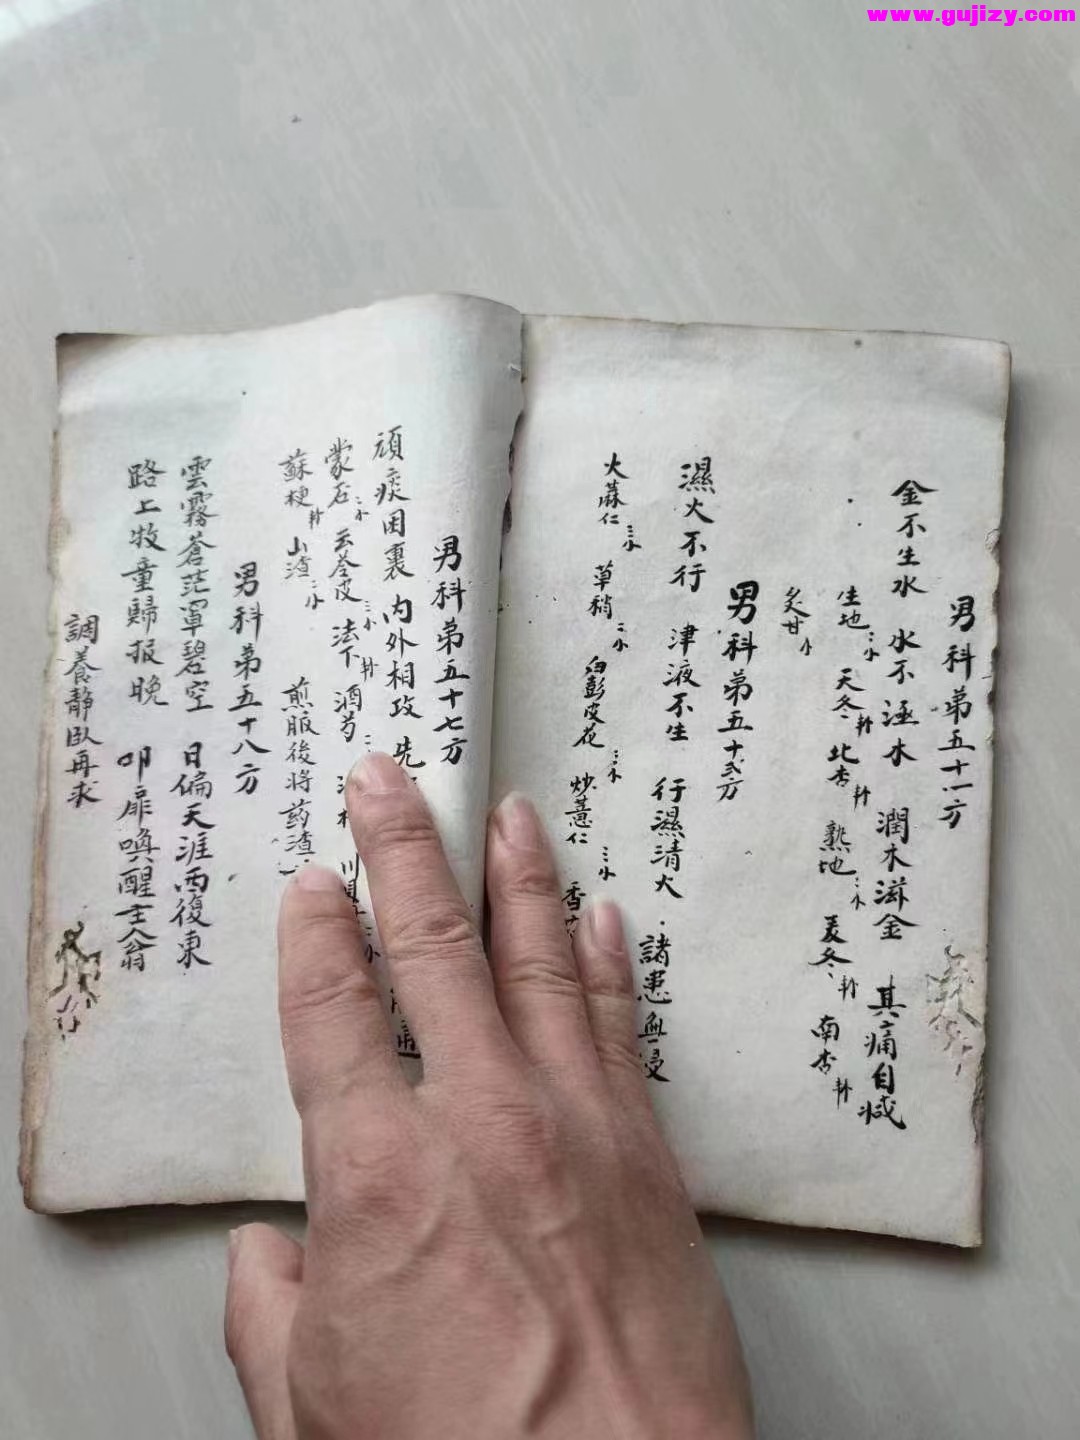 www.gujizy.com
男科第五十一方
金不生水 水不涵木 潤木滋金 其痛自減
生地 天冬 北杏 熟地 麦冬 南杏
炙甘
男科第五十弍方
濕火不行 津液不生 行濕清火 諸患無侵
火蔴仁 草稍 白彭皮花 炒薏仁 香
男科第五十七方
頑痰困裹 內外相攻 先
蒙石 云苓皮 法下 酒芍 川貝
蘇梗 山渣 煎服後將药渣
男科第五十八方
雲霧蒼茫罩碧空 日偏天涯西復東
路上牧童歸报晚 叩扉喚醒主人翁
調養静臥再求